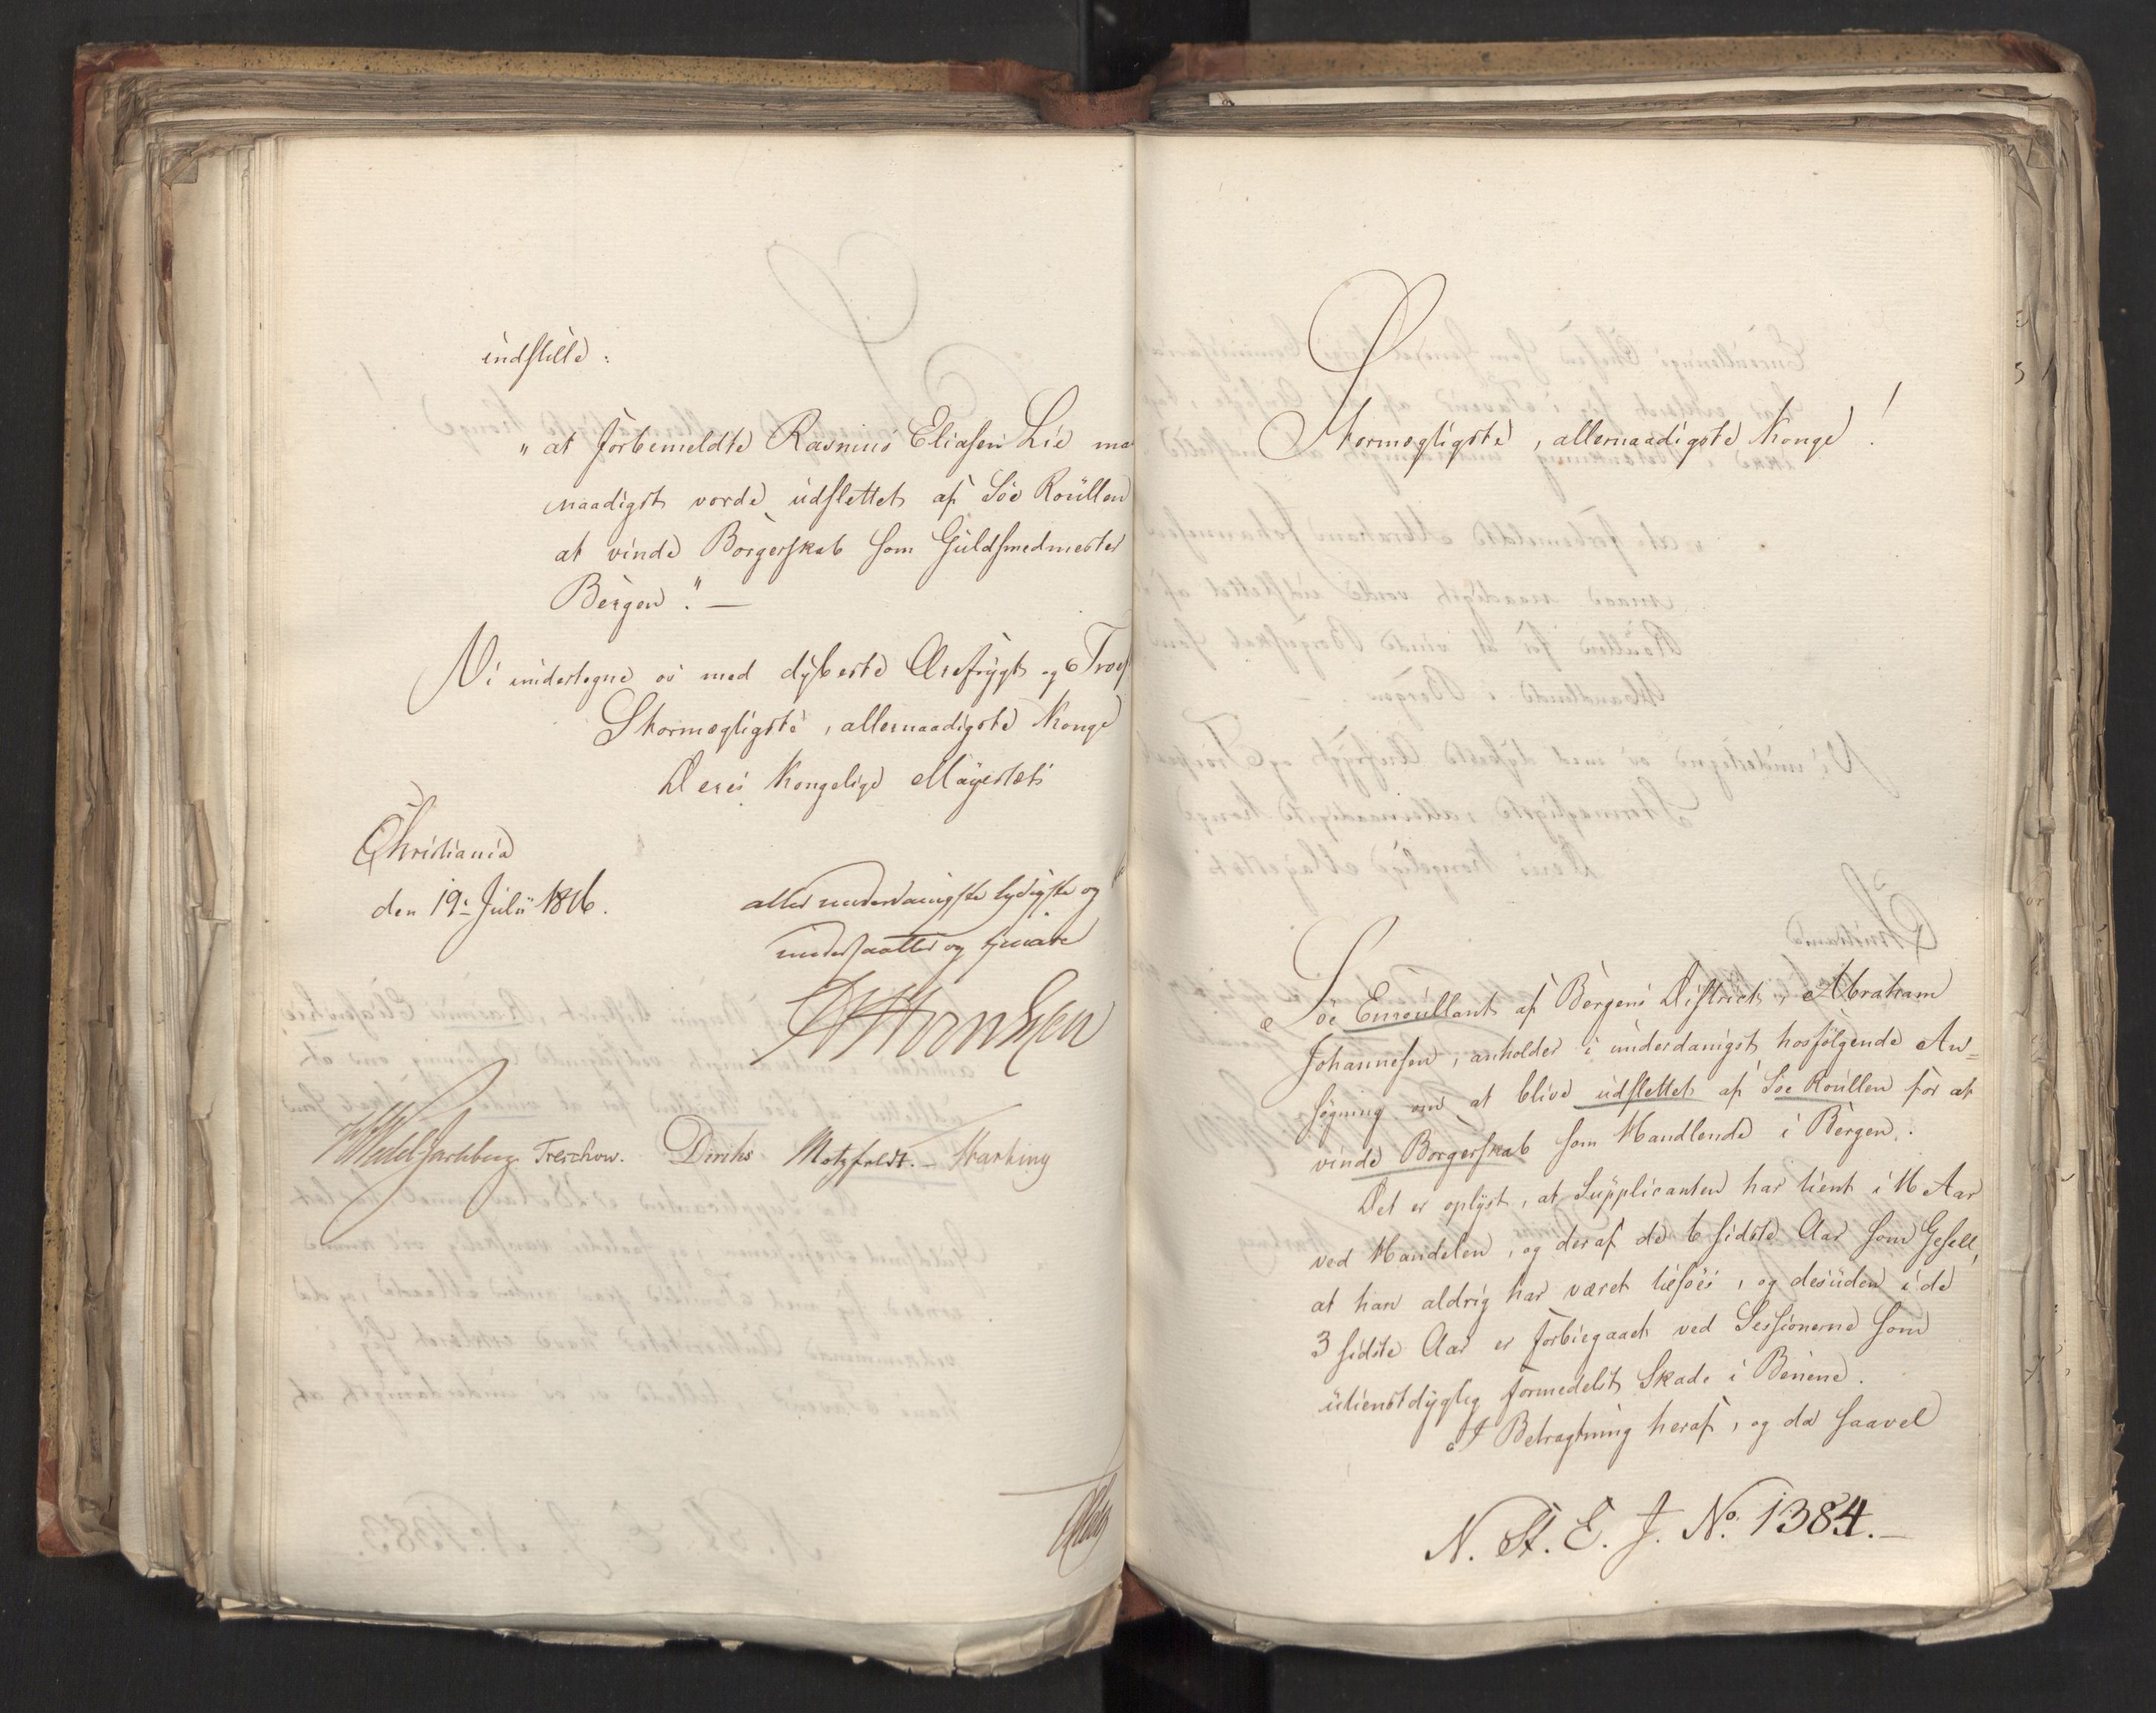 indstille:
"at forbemeldte Rasmus Eliasen Lie maa
naadigst vorde udslettet af Søe Roullen
at vinde Borgerskab som Guldsmedmester
Bergen." —
Vi undertegne os med dybeste Ærefrygt og Troes
Stormægtigste, allernaadigste Konge
Deres Kongelige Majestæts
Christiania
den 19de Julii 1816.
allerunderdanigste lydigste og
undersaatter og tjenere
Wedel Jarlsberg Treschow. Diriks Motzfeldt. — Harbing
Stormægtigste, allernaadigste Konge!
Søe Enroullent af Bergens District, Abraham
Johannesen, anholder i underdanigst hosfølgende An=
søgning om at blive udslettet af Søe Roullen for at
vinde Borgerskab som Handlende i Bergen.
Det er oplyst, at Supplicanten har tient i 16 Aar
ved Handelen, og deraf de 6 sidste Aar som Gesell,
at han aldrig har været tilsøes, og desuden i de
3 sidste Aar er forbiegaaet ved Sessionerne som
utienstdygtig formedelst Skade i Benene.
I Betragtning heraf, og da saavel
N. St. E. J. No. 1384. —